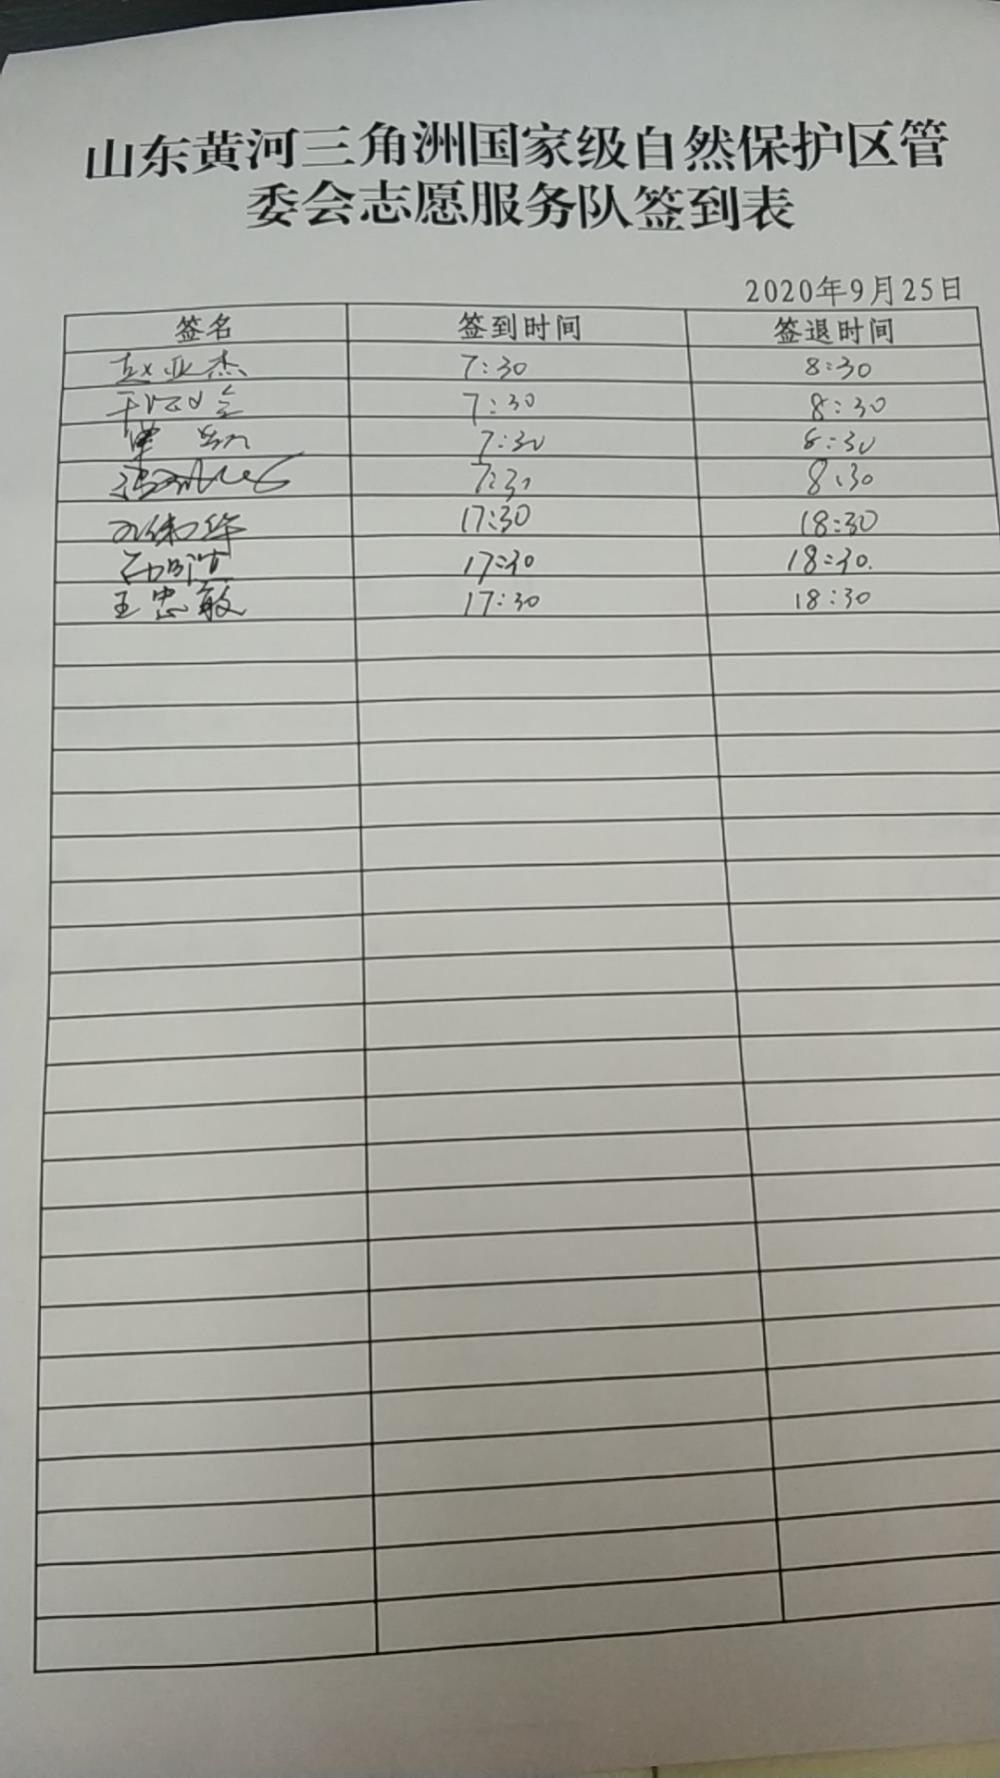 山东黄河三角洲国家级自然保护区管
委会志愿服务队签到表
2020年9月25日
签名 签到时间 签退时间
赵亚杰 7:30 8:30
7:30 8:30
单凯 7:30 8:30
7:30 8:30
17:30 18:30
17:30 18:30.
王忠敏 17:30 18:30